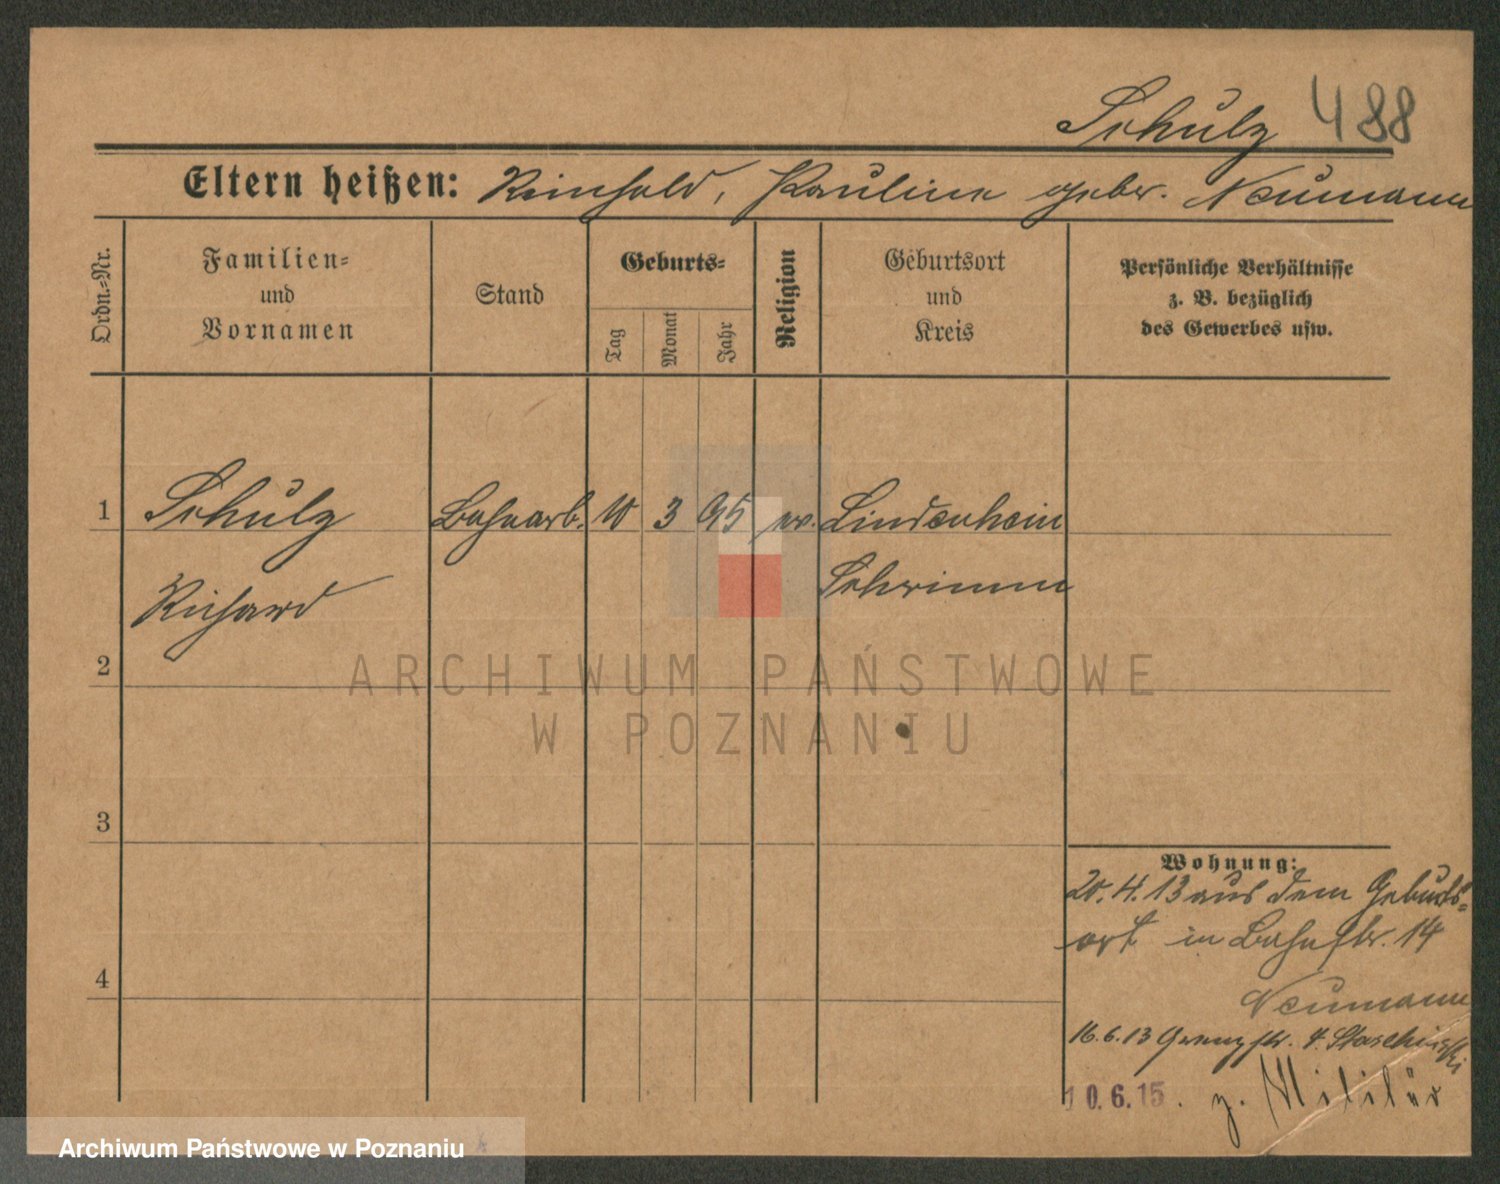 Schulz 488
Eltern heißen: Reinhold, Pauline geb. Neumann
Ordn.-Nr.
Familien-
und
Vornamen
Stand
Geburts-
Tag
Monat
Jahr
Religion
Geburtsort
und
Kreis
Persönliche Verhältnisse
z. B. bezüglich
des Gewerbes usw.
1 Schulz Bahnarb. 10 3 95 ev. Lindenhain
Richard Schrimm
2
3
4
Wohnung:
20.4.13 aus dem Geburts-
ort in Bahnstr. 14
Neumann
16.6.13 Grenzstr. 4.
10.6.15. z. Militär
ARCHIWUM PAŃSTWOWE
W POZNANIU
Archiwum Państwowe w Poznaniu